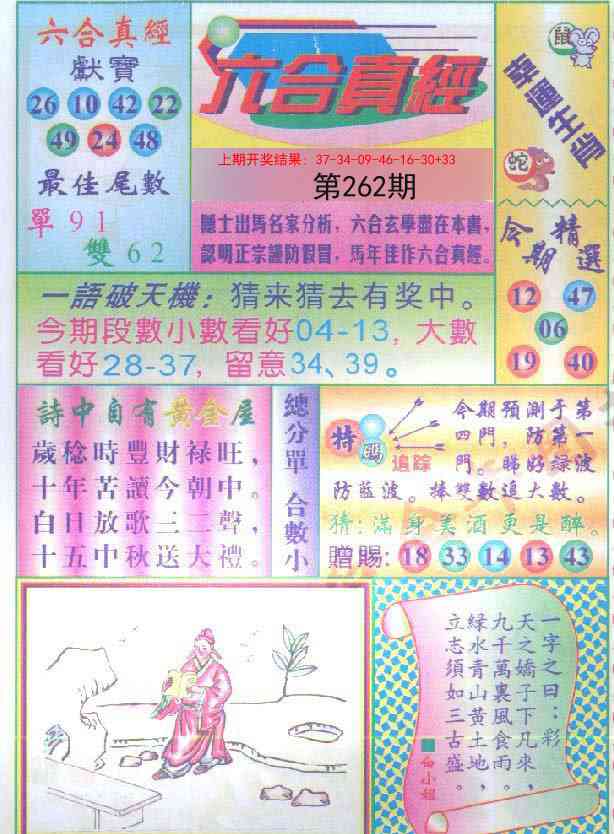 六合真經
獻寶
26 10 42 22
49 24 48
最佳尾數
單 9 1
雙 6 2
六合真經
上期开奖结果：37-34-09-46-16-30+33
第262期
隱士出馬名家分析，六合玄學盡在本書，
認明正宗謹防假冒，馬年佳作六合真經。
鼠
幸運生肖
蛇
今期精選
12 47
06
19 40
一語破天機：猜来猜去有奖中。
今期段數小數看好04-13，大數
看好28-37，留意34、39。
詩中自有黃金屋
歲稔時豐財禄旺，
十年苦讀今朝中。
白日放歌三二聲，
十五中秋送大禮。
總分單 合數小
特碼
追踪
今期預測于第
四門，防第一
門。睇好緑波
防藍波。捧雙數追大數。
猜：滿身美酒更是醉。
贈賜：18 33 14 13 43
一字之曰：彩
天之嬌子下凡來，
九千萬裏風食雨，
緑水青山黃土地，
立志須如三古盛。
白小姐